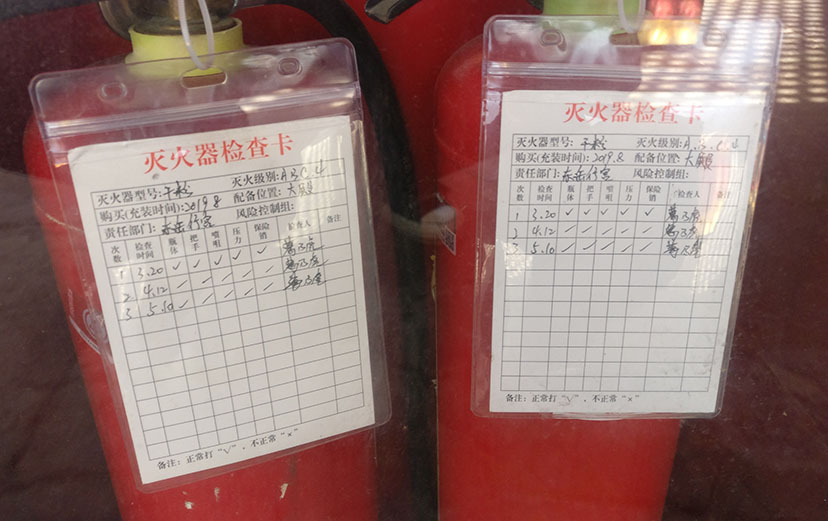 灭火器检查卡
灭火器型号:干粉 灭火级别:A.B.C.4
购买(充装时间):2019.8 配备位置:大殿
责任部门: 风险控制组:
次数 检查时间 瓶体 把手 喷咀 压力 保险销 检查人 备注
1 3.20 ✓ ✓ ✓ ✓ ✓
2 4.12
3 5.10
备注:正常打“√”,不正常“×”
灭火器检查卡
灭火器型号:干粉 灭火级别:A.B.C.4
购买(充装时间):2019.8 配备位置:大殿
责任部门: 风险控制组:
次数 检查时间 瓶体 把手 喷咀 压力 保险销 检查人 备注
1 3.20 ✓ ✓ ✓ ✓ ✓
2 4.12
3 5.10
备注:正常打“√”,不正常“×”